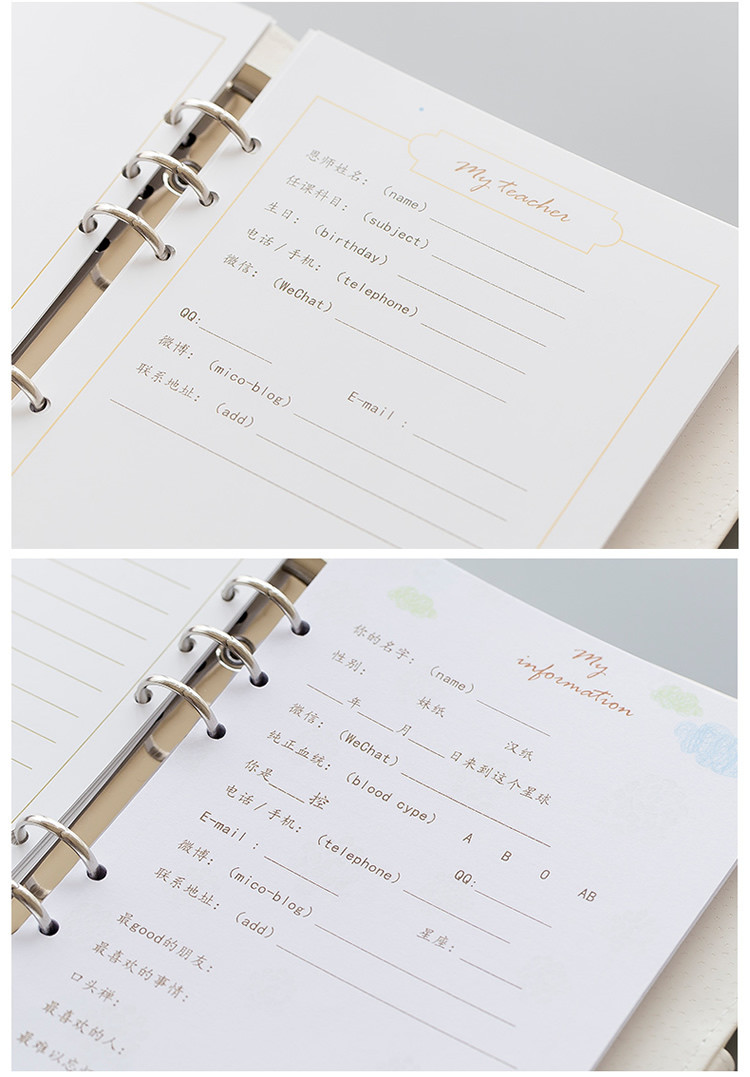 My teacher
恩师姓名：（name）
任课科目：（subject）
生日：（birthday）
电话／手机：（telephone）
微信：（WeChat）
QQ:
微博：（mico-blog）
E-mail：
联系地址：（add）
My
information
你的名字：（name）
性别： 妹纸 汉纸
年 月 日来到这个星球
微信：（WeChat）
纯正血统：（blood cype） A B O AB
你是 控
电话／手机：（telephone）
QQ:
E-mail：
微博：（mico-blog）
星座：
联系地址：（add）
最good的朋友：
最喜欢的事情：
口头禅：
最喜欢的人：
最难以忘